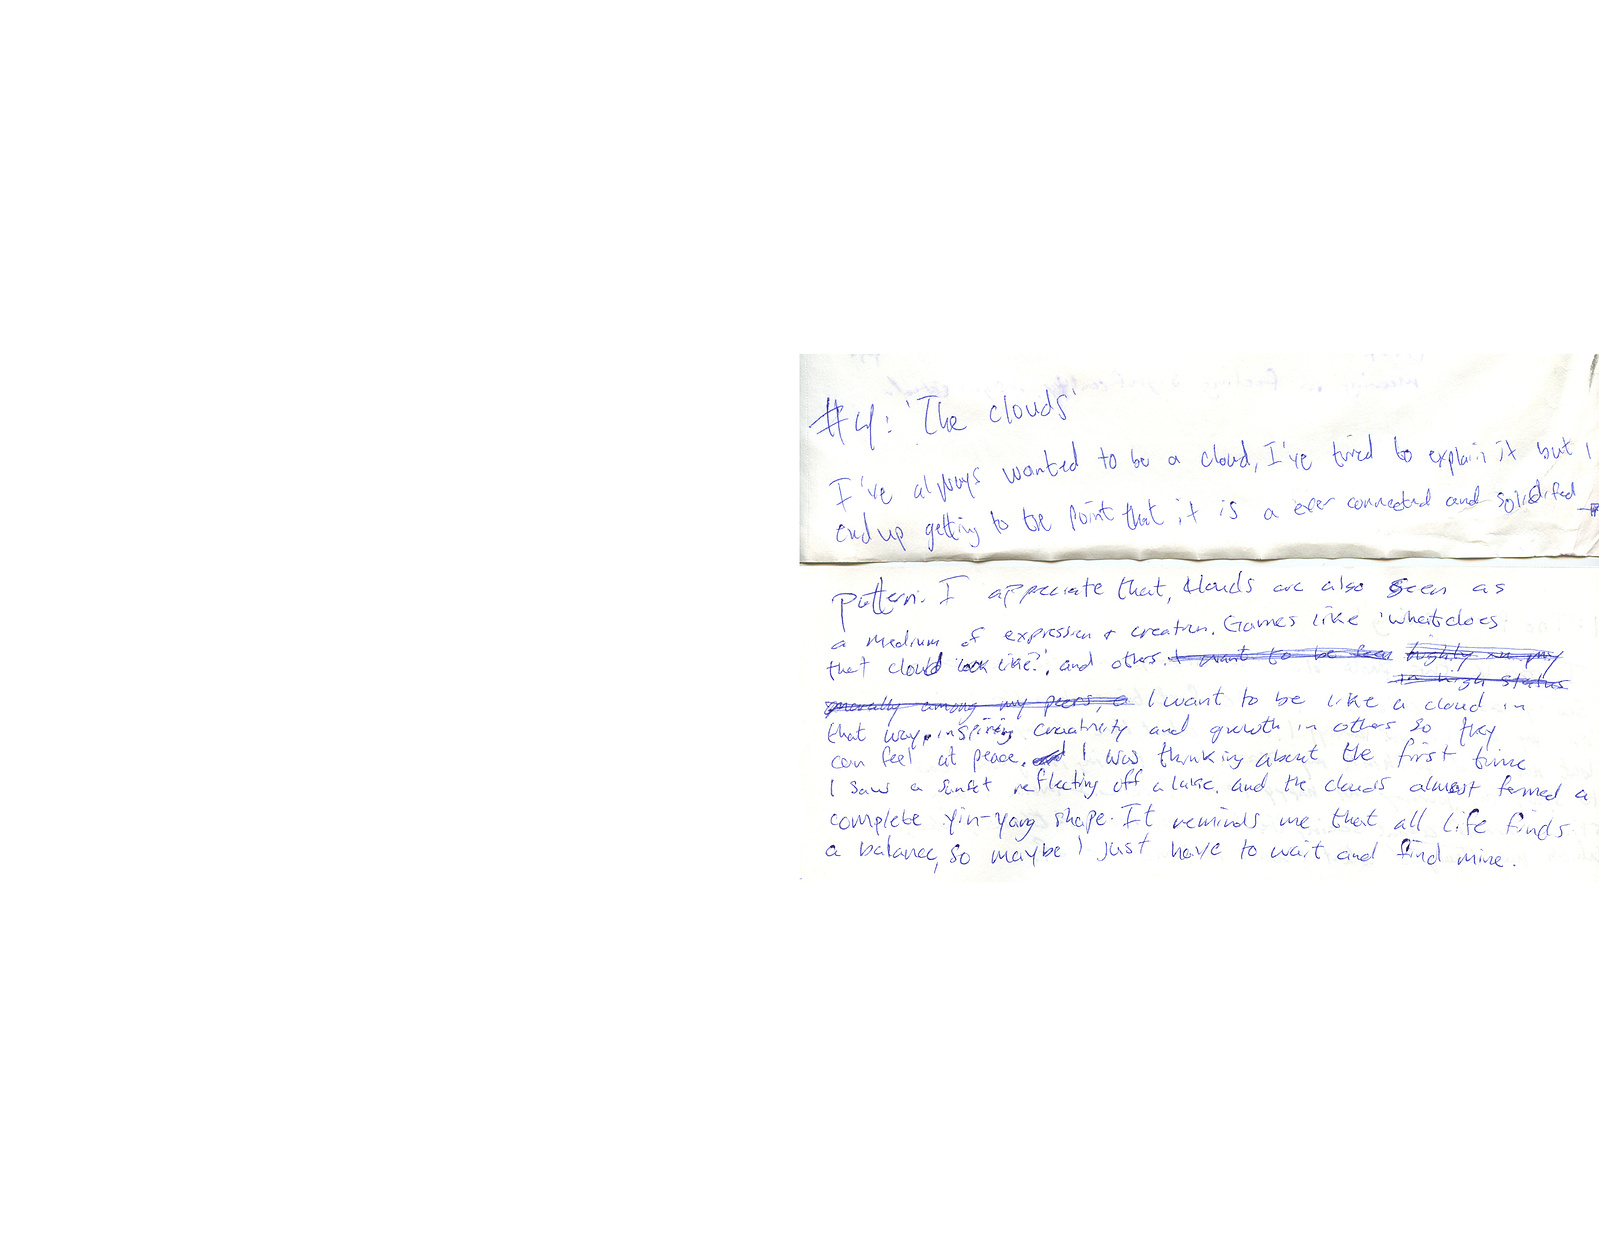 #4: 'The clouds'
I've always wanted to be a cloud, I've tired to explain it but I
end up getting to the point that it is a ever connected and solidified
pattern. I appreciate that, clouds are also seen as
a medium of expression + creation. Games like 'what does
that cloud look like?', and others. I want to be seen highly in my
in high status
generally among my peers, a I want to be like a cloud in
that way, inspiring creativity and growth in others so they
can feel at peace. I was thinking about the first time
I saw a sunset reflecting off a lake. and the clouds almost formed a
complete yin-yang shape. It reminds me that all life finds
a balance, so maybe I just have to wait and find mine.